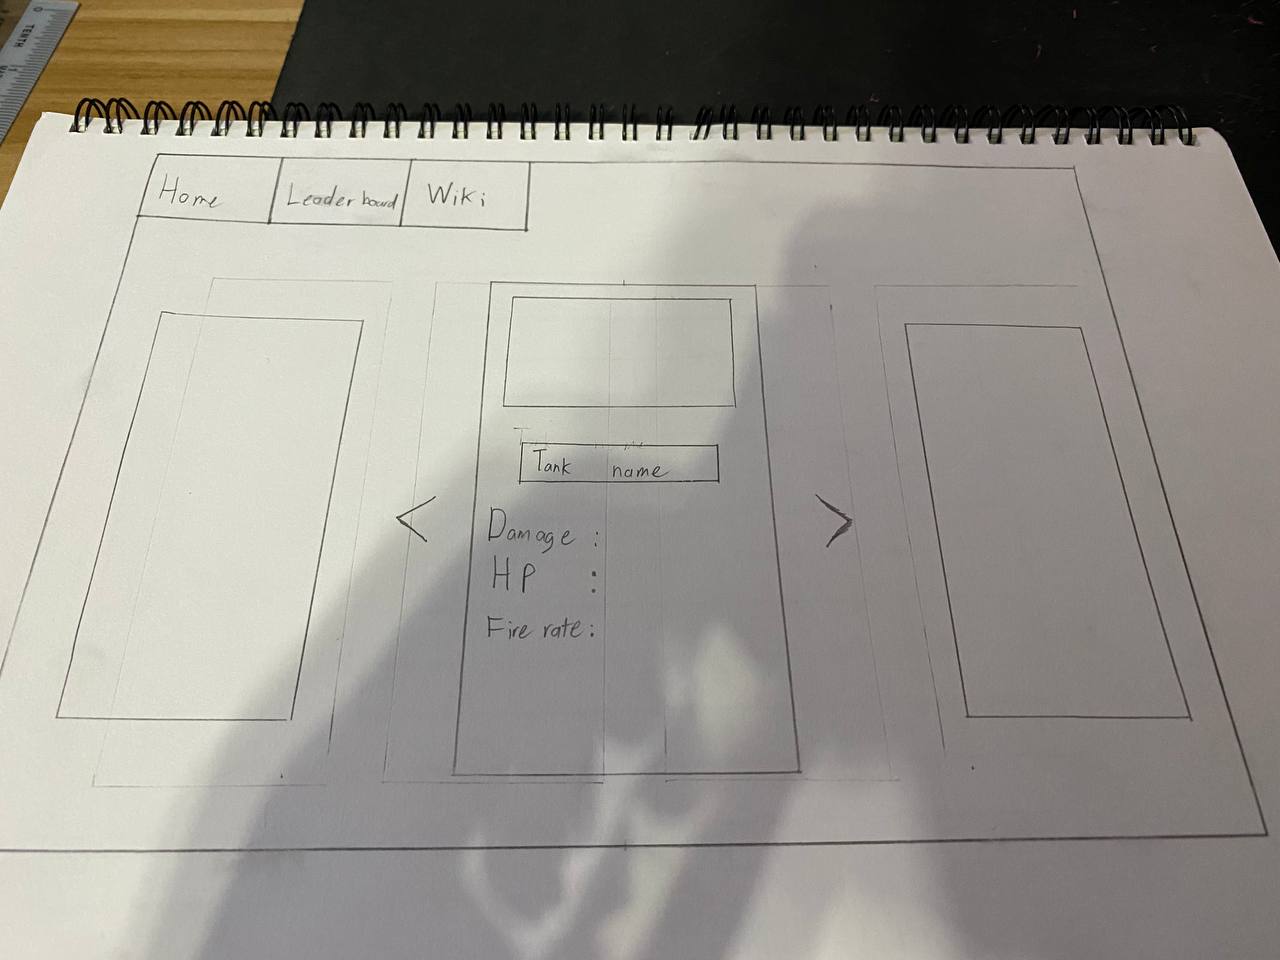 0
TENTH
1
Home
Leader board
Wiki
Tank name
Damage :
HP :
Fire rate: